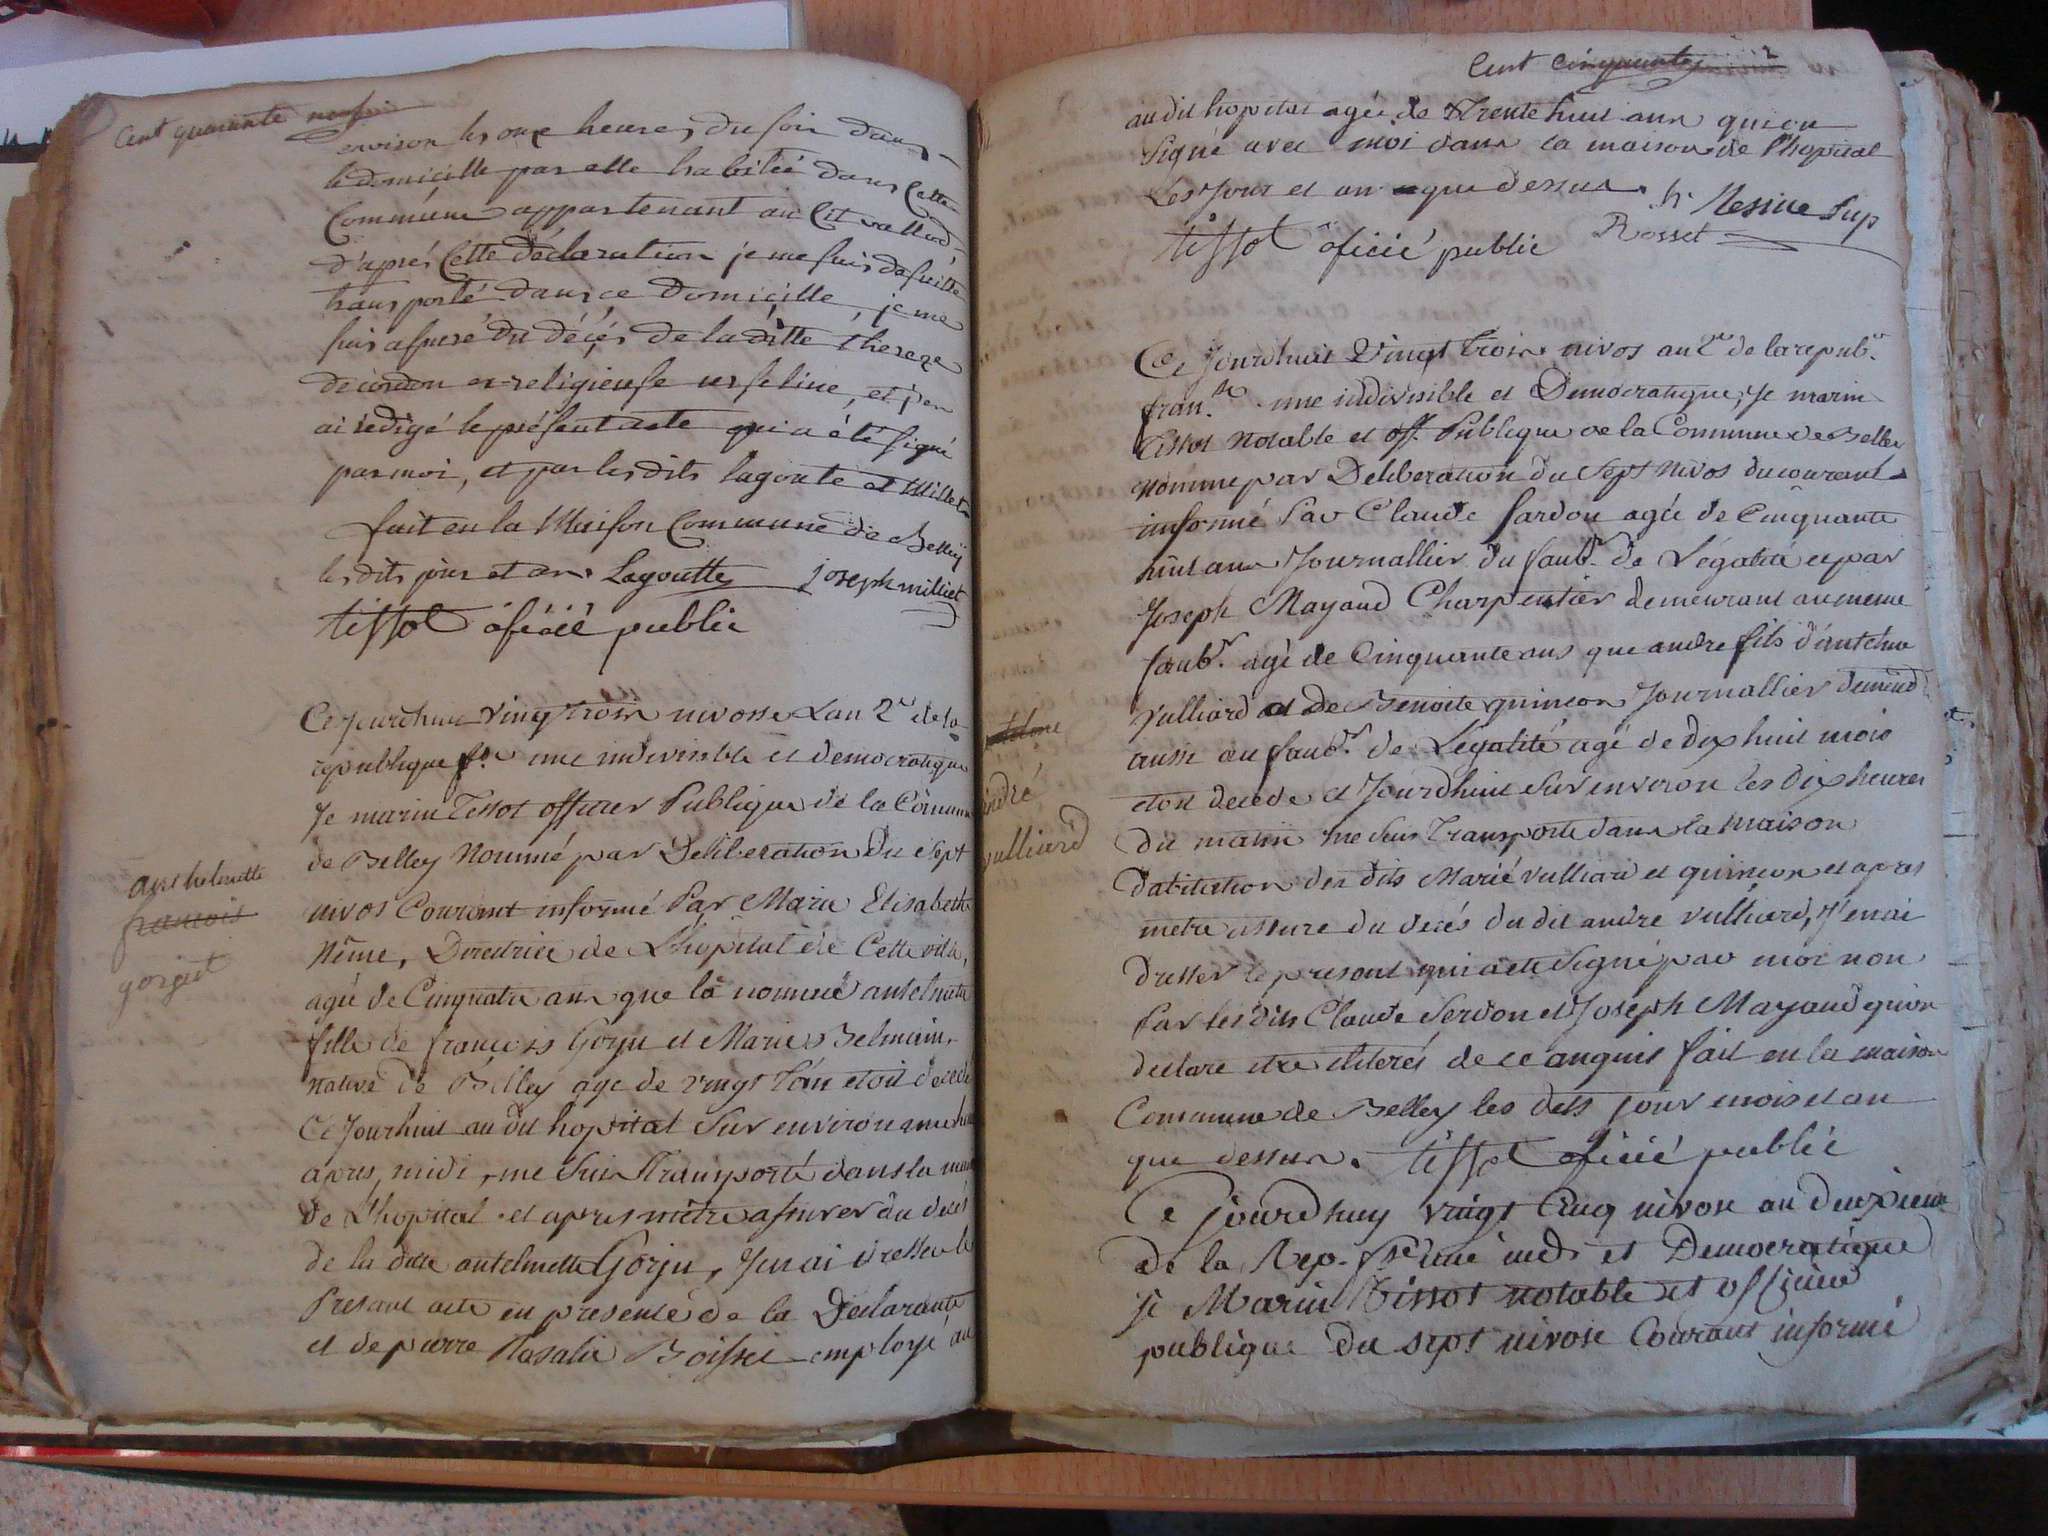 Cent quarante neuf
environ les onze heures du soir dans
le domicille par elle habitée dans Cette
Commune appartenant au Cit vallod
d'aprés Cette déclaration je me suis de suitte
transporté dans ce Domicille, je me
suis assuré du décés de la ditte thereze
decordon ex-religieuse urseline, et j'en
ai rédigé le présent acte qui a été signé
par moi, et par les dits lagoute et Milliet
fait en la Maison Commune de Belley
les dits jour et an. Lagoutte joseph milliet
tissot oficié public
Ce jourdhui vingt trois nivosse Lan 2e de la
republique fse une indivisible et democratique
Je marin Tissot officier Publique de la Comune
de Belley Nommé par Deliberation du sept
nivos Courant informé Par Marie Elisabeth
Néme, Directrice de Lhopital de Cette ville,
agée de Cinquante ans que la nommé antelmette
fille de francois Gorju et Marie Belmain
native de Belley age de vingt etoit decedé
Ce Jourhuit au dit hopital Sur environ une heure
apres midi, me suis Transporté dans la mai
de Lhopital et apres mêtre assurer du decés
de la ditte antelmette Gorju, Jen ai dresser le
Presant acte en presence de la Declarante
et de pierre Rosalie Boisset employé au
anthelmette
francois
gorget
Cent Cinquante
au dit hopital agée de Trente huit ans qui on
signé avec moi dans la maison de l'hopital
Les Jour et an que dessus. Sr Nesme Sup
tissot oficié public Rosset
Ce Jourdhuit Vingt trois nivos an 2e de la repub.
fran. une indivisible et Democratique, Je marin
Tissot Notable et off. Publique de la Commune de Belley
nommé par Deliberation du Sept Nivos du courant
informé Par Claude fardon agée de Cinquante
huit ans Journallier du faubr. de Légalité et par
Joseph Mayaud Charpentier demeurant au meme
faubr. agé de Cinquante ans que andre fils d'antelme
Vulliard et de Benoite quincon Journallier demeurd
aussi au faubr. de Légalité agé de dix huit mois
etoit decede et Jourdhuit Sur environ les dix heures
du matin me Suis Transporté dans la maison
dabitation des dits Marié vulliard et quincon et apres
metre assure du decés du dit andre vulliard, J'en ai
dresser le presant qui acte Signé par moi non
Par les dits Claude Serdon et Joseph Mayaud qui on
declare etre iliterés de ce anquis fait en la maison
Commune de Belley les dits jour mois et an
que dessus. tissot oficié public
andré
vulliard
Ce jourdhuy vingt Cinq nivose an deuxieme
de la Rep. fse une ind. et Democratique
je Marin Tissot notable et officier
publique du sept nivose Courant informé